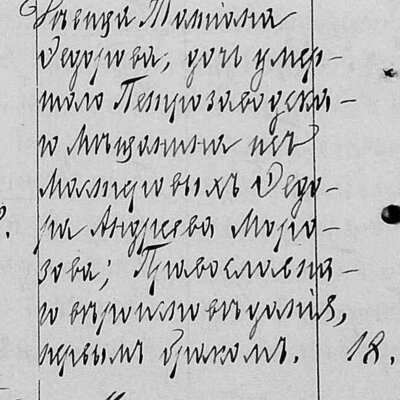 Дѣвица Татіана
Ѳедорова, дочь умер-
шаго Петрозаводска-
го мѣщанина изъ
мастеровыхъ Ѳедо-
ра Андреева Моро-
зова; Православна-
го вѣроисповѣданія,
первымъ бракомъ. 18.